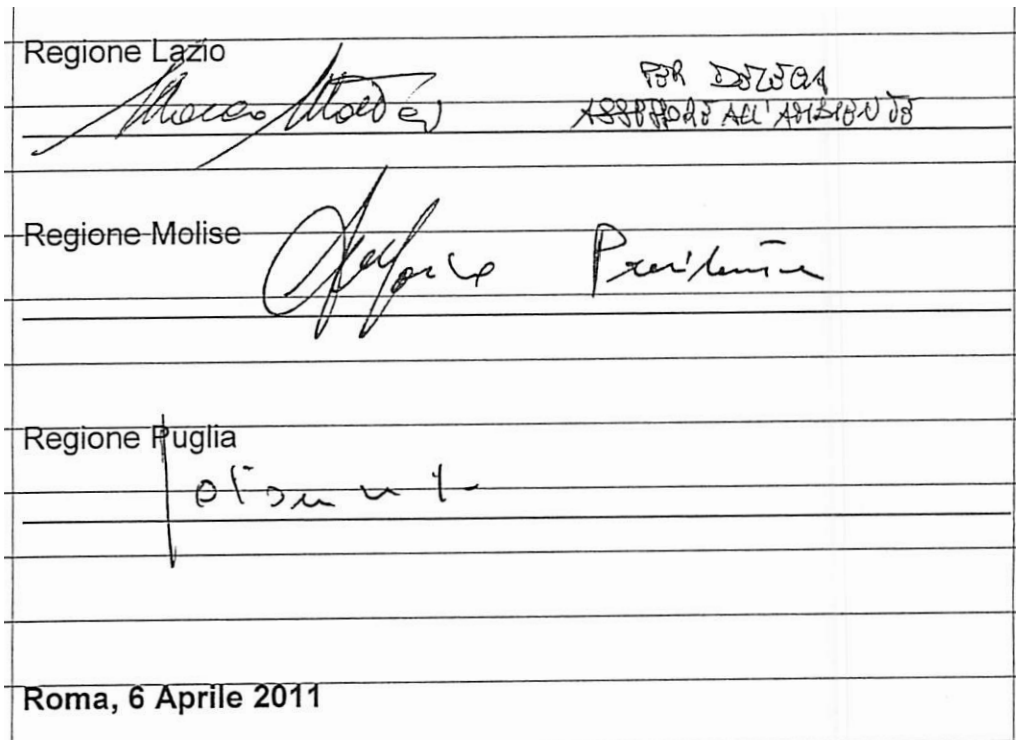 Regione Lazio
PER DELEGA
Marco Mattei ASSESSORE ALL'AMBIENTE
Regione Molise
Presidente
Regione Puglia
Roma, 6 Aprile 2011